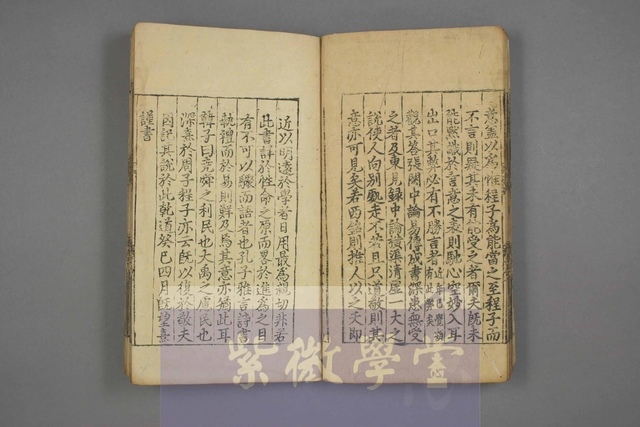 意蓋以爲惟程子爲能當之至程子而
不言則疑其未有能受之者爾夫既未
能默識於言意之表則馳心空妙入耳
出口其弊必有不勝言者近年已覺頗有此弊矣
觀其答張閎中論易傳成書深患無受
之者及東見録中論横渠清虚一大之
說使人向别䖏走不若且只道敬則其
意亦可見矣若西銘則推人以之天即
近以明遠於學者日用最爲親切非若
此書詳於性命之原而畧於進爲之目
有不可以驟而語者也孔子雅言詩書
執禮而於易則鮮及焉其意亦猶此耳
韓子曰堯舜之利民也大禹之慮民也
深熹於周子程子亦云既以復於敬夫
因記其說於此乾道癸巳四月既望熹
謹書
紫微學堂